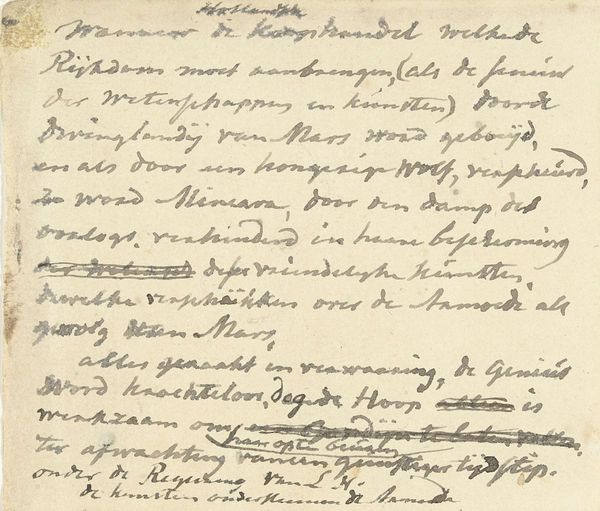 Hollandsche
Wanneer de Koophandel welke de
Rijkdom moet aanbrengen, (als de
der Wetenschappen en kunsten) door de
dwinglandij van Mars word geboeijd,
en als door een hongerige Wolf, verscheurd,
word Minerva, door den damp des
oorlogs. verhinderd in haare bescherming
deser vriendelyke kunsten,
dewelke verschrikken over de Armoede als
gevolg van Mars,
alles geraakt in verwarring, de Genius
word krachteloos, dog de Hoop is
werkzaam om
haar op te beuren
ter afwachting van een gunstiger tijdstip.
onder de Regering van L. N.
de kunsten ondersteunen de Armoede